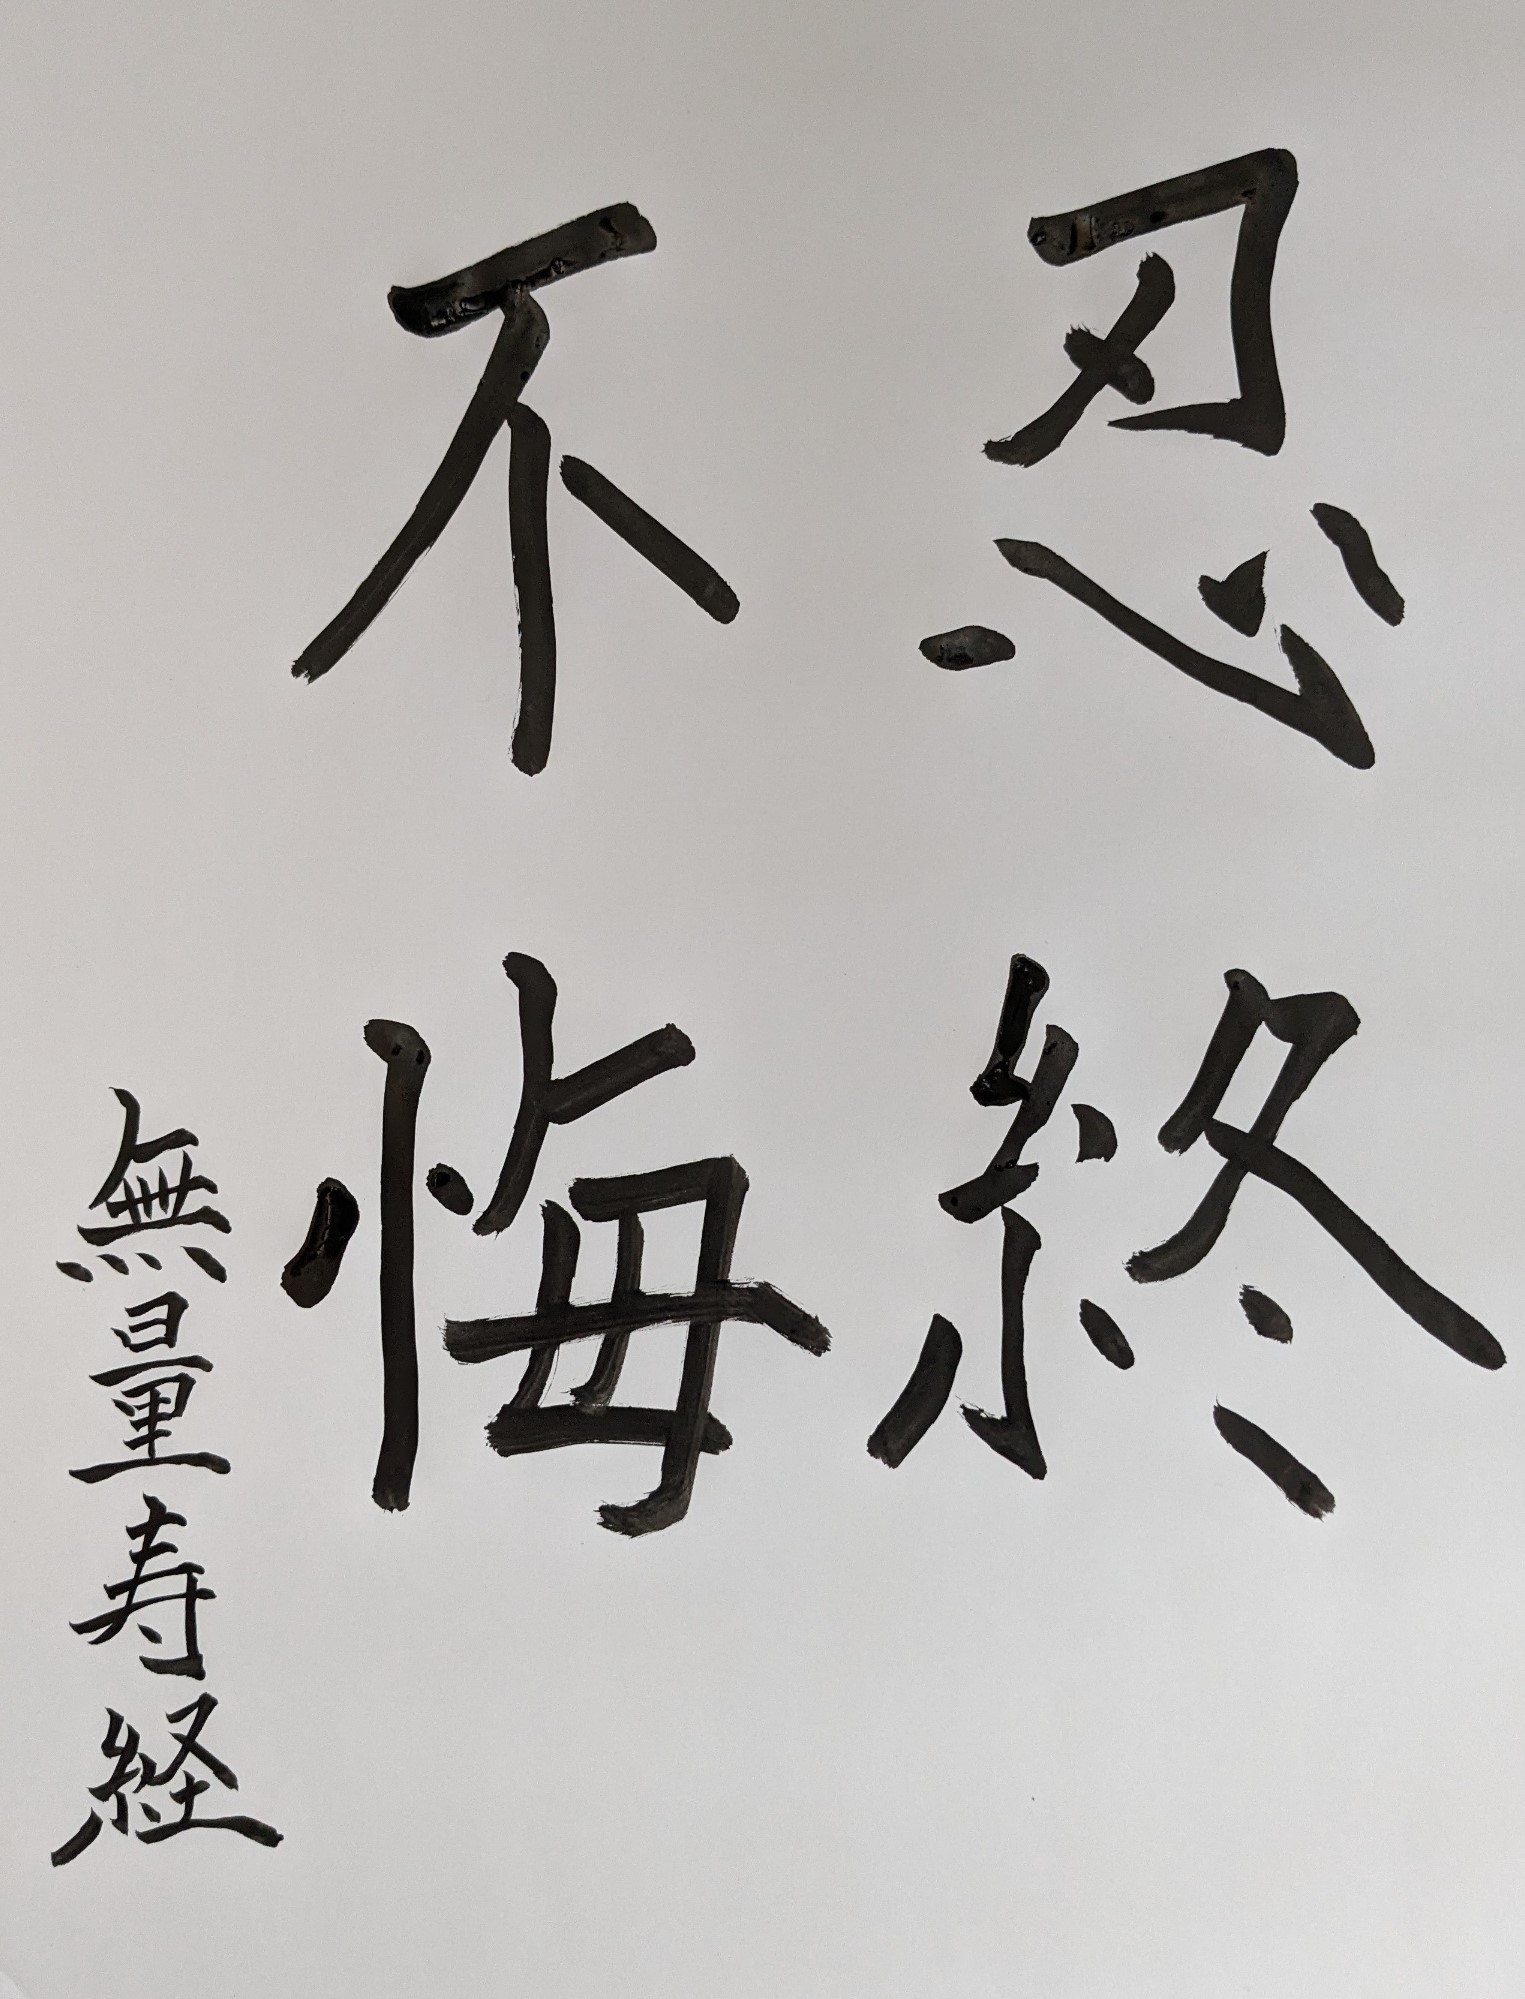 忍終
不悔
無量寿経